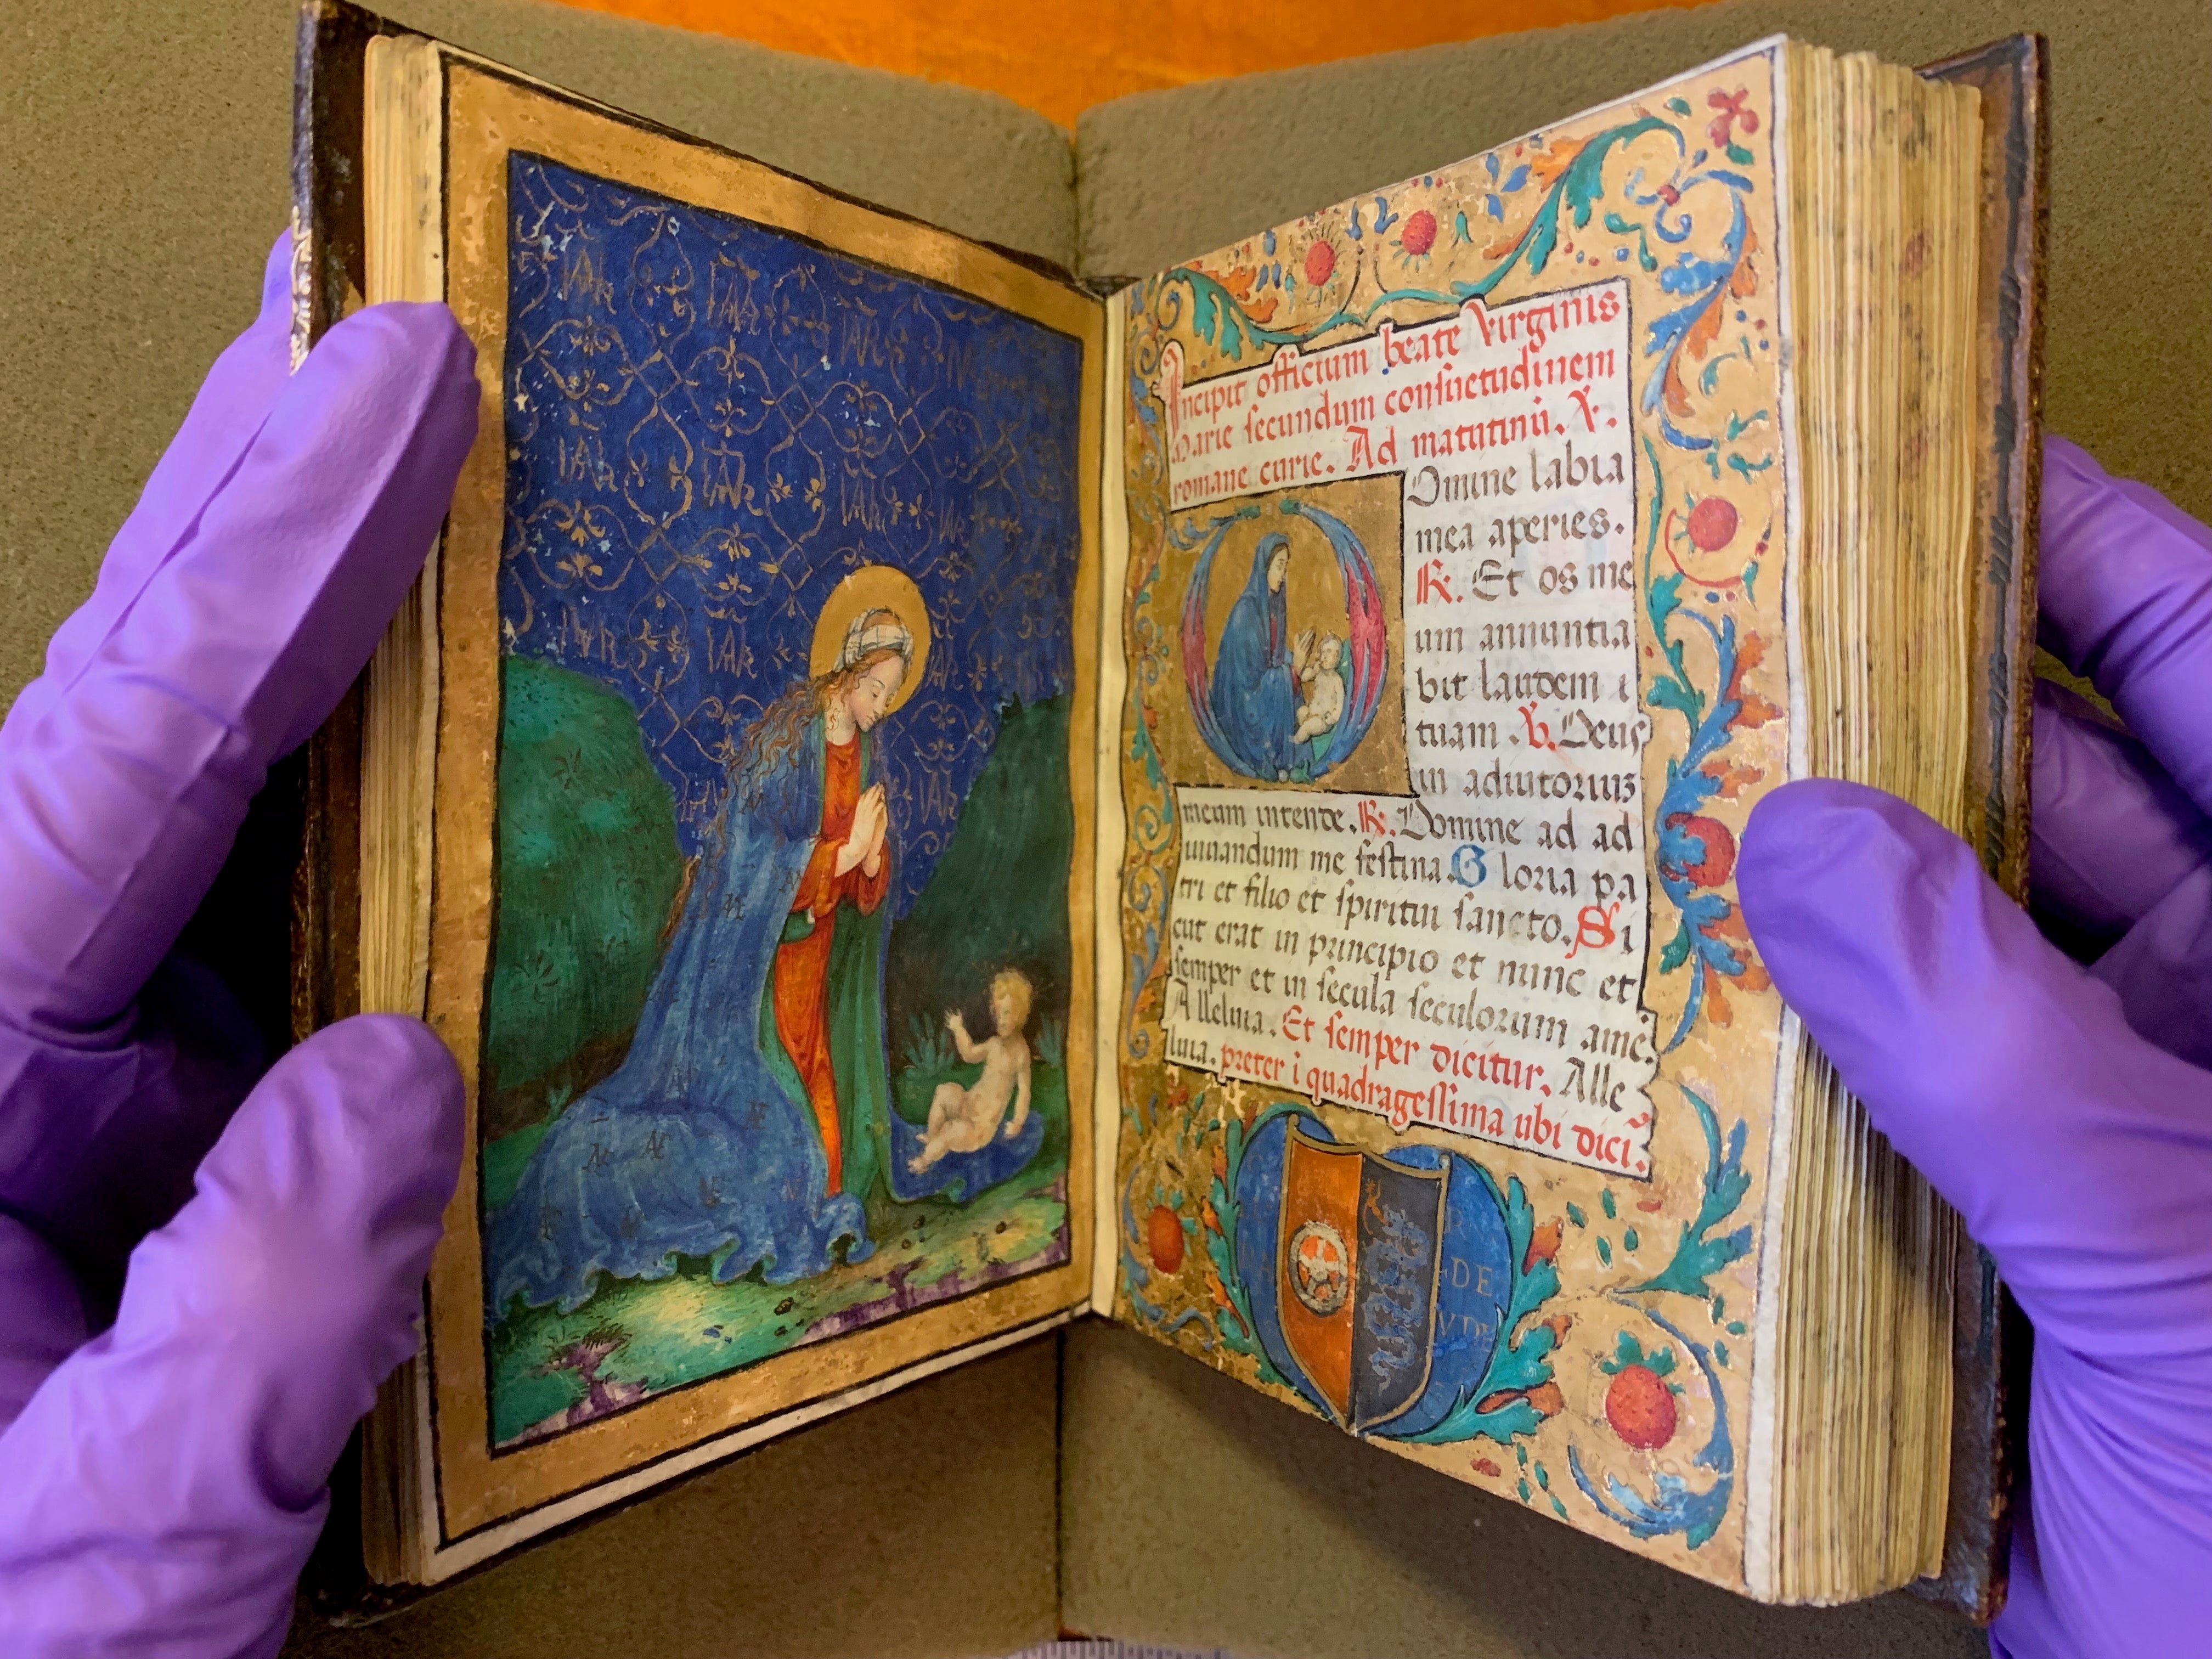 Incipit officium beate virginis
Marie secundum consuetudinem
romane curie. Ad matutinū. V.
Domine labia
mea aperies.
R. Et os me
um annuntia
bit laudem
tuam. V. Deus
in adiutoriuz
meum intende. R. Domine ad ad
iuuandum me festina. Gloria pa
tri et filio et spiritui sancto. Si
cut erat in principio et nunc et
semper et in secula seculorum amē.
Alleluia. Et semper dicitur. Alle
luia. preter ī quadragessima ubi dici
DE